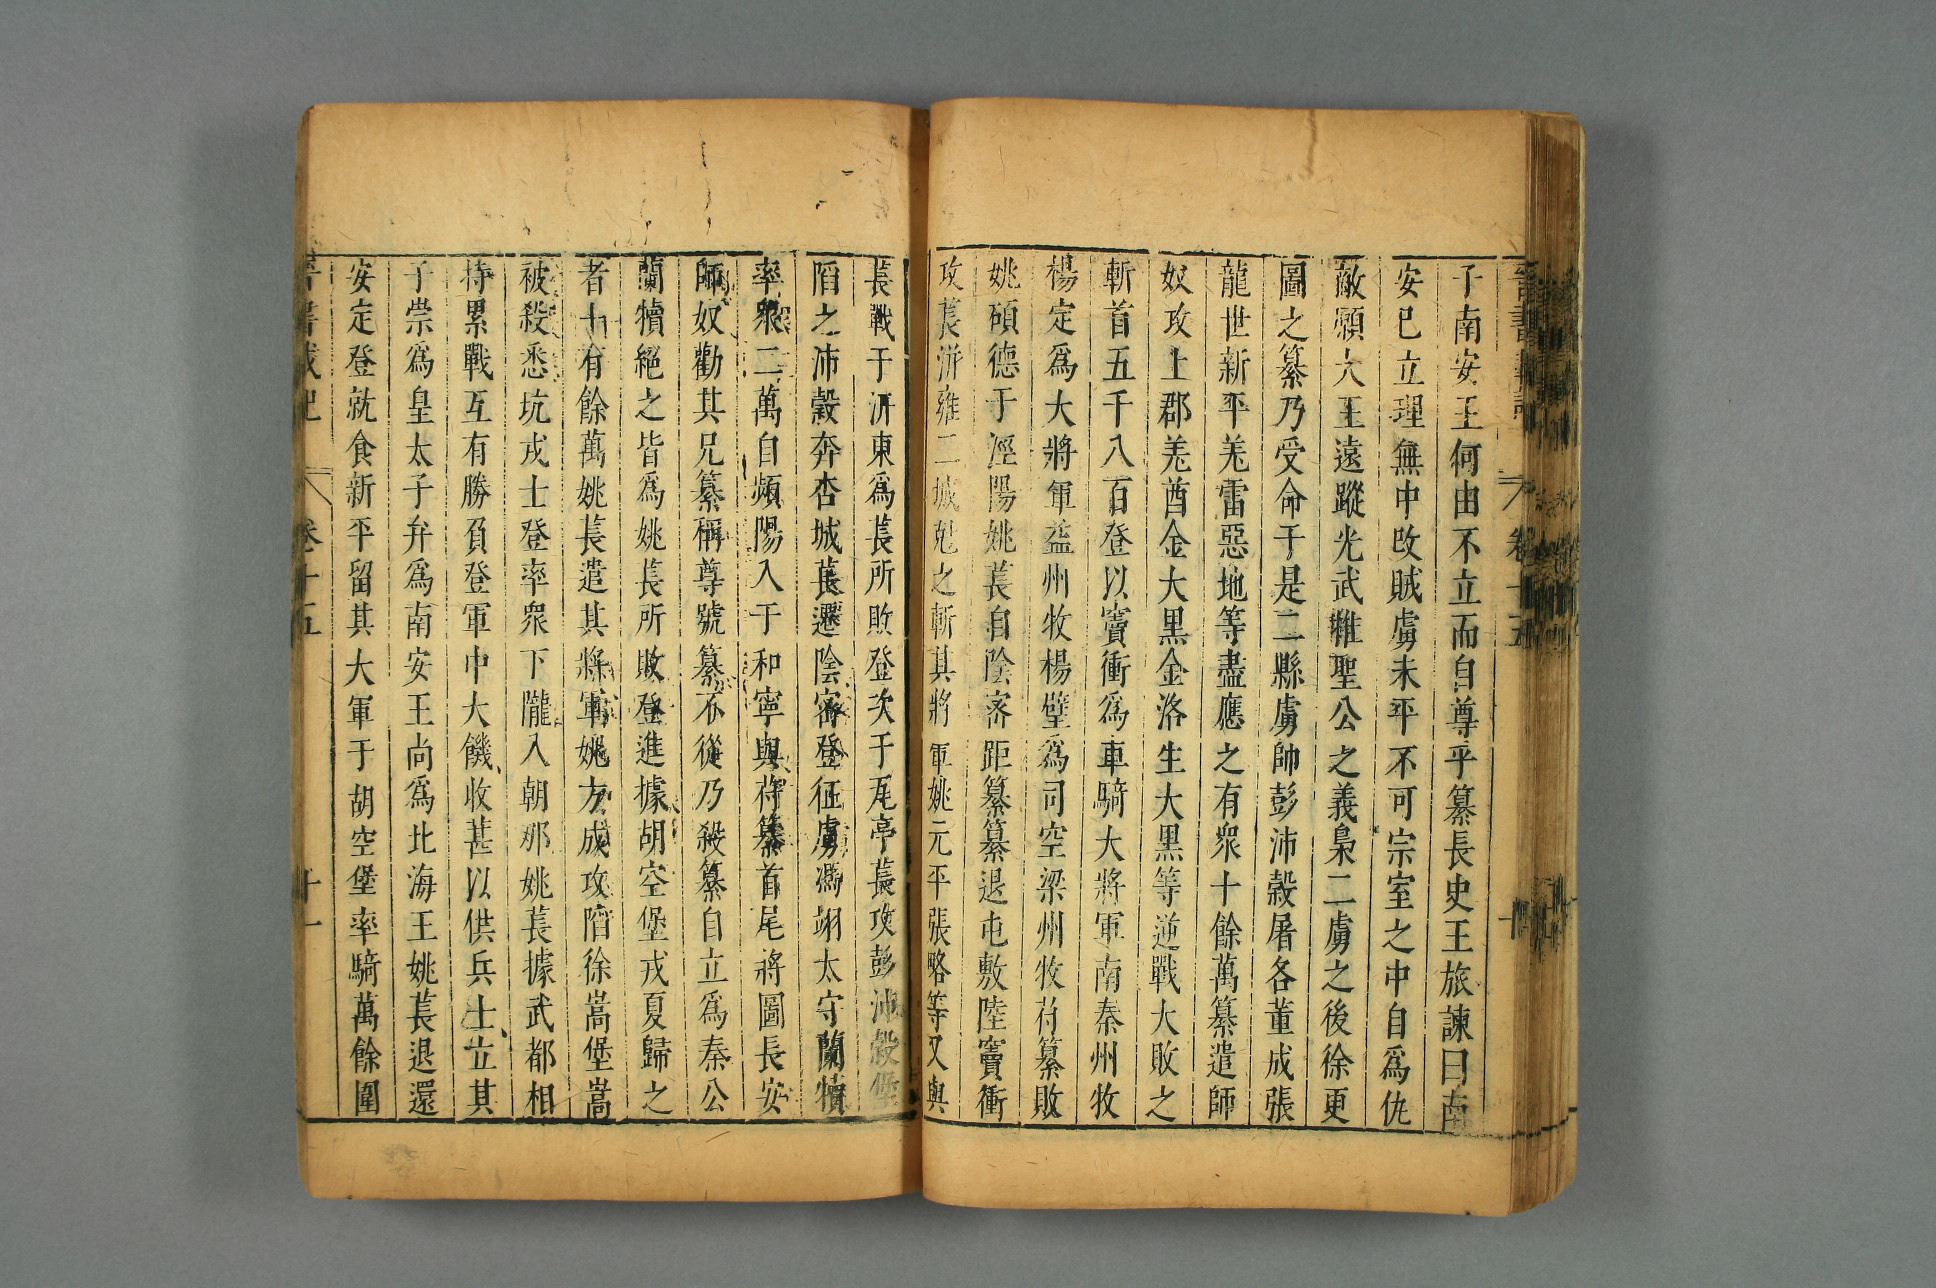 子南安王何由不立而自尊乎纂長史王旅諫曰南
安已立理無中改賊虜未平不可宗室之中自爲仇
敵願大王遠蹤光武推聖公之義梟二虜之後徐更
圖之纂乃受命于是二縣虜帥彭沛穀屠各董成張
龍世新平羌雷惡地等盡應之有衆十餘萬纂遣師
奴攻上郡羌酋金大黑金洛生大黑等逆戰大敗之
斬首五千八百登以竇衝爲車騎大將軍南秦州牧
楊定爲大將軍益州牧楊璧爲司空梁州牧苻纂敗
姚碩德于涇陽姚萇自陰密距纂纂退屯敷陸竇衝
攻萇汧雍二城尅之斬其將軍姚元平張略等又與
萇戰于汧東爲萇所敗登次于瓦亭萇攻彭沛穀堡
陷之沛穀奔杏城萇遷陰密登征虜馮翊太守蘭犢
率衆二萬自頻陽入于和寧與苻纂首尾將圖長安
師奴勸其兄纂稱尊號纂不從乃殺纂自立爲秦公
蘭犢絕之皆爲姚萇所敗登進據胡空堡戎夏歸之
者十有餘萬姚萇遣其將軍姚方成攻陷徐嵩堡嵩
被殺悉坑戎士登率衆下隴入朝那姚萇據武都相
持累戰互有勝負登軍中大饑收葚以供兵士立其
子崇爲皇太子弁爲南安王尚爲北海王姚萇退還
安定登就食新平留其大軍于胡空堡率騎萬餘圍
晉書載記 卷十五 十一